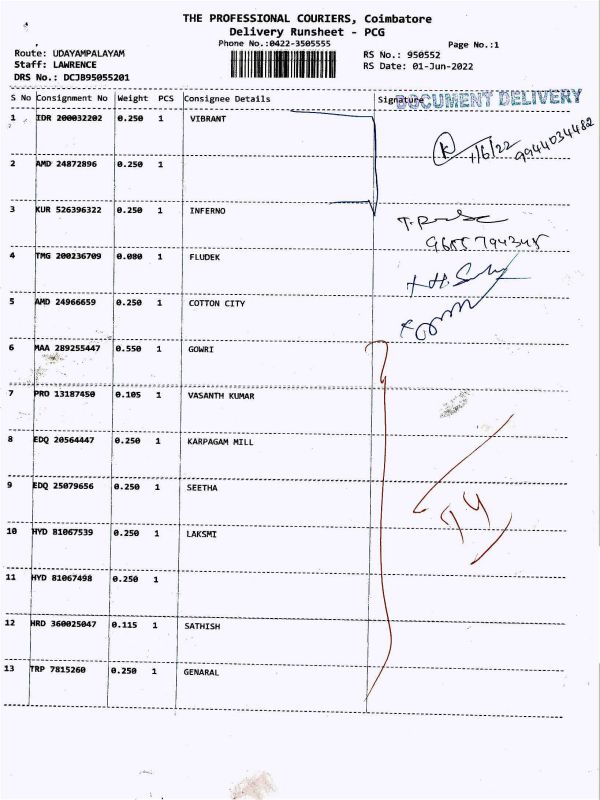 THE PROFESSIONAL COURIERS, Coimbatore
Delivery Runsheet - PCG
Phone No.:0422-3505555
Page No.:1
Route: UDAYAMPALAYAM
RS No.: 950552
Staff: LAWRENCE
RS Date: 01-Jun-2022
DRS No.: DCJB95055201
S No Consignment No Weight PCS Consignee Details Signature
DOCUMENT DELIVERY
1 IDR 200032202 0.250 1 VIBRANT
K 1/6/22 9944034482
2 AMD 24872896 0.250 1
3 KUR 526396322 0.250 1 INFERNO
4 TMG 200236709 0.080 1 FLUDEK
5 AMD 24966659 0.250 1 COTTON CITY
6 MAA 289255447 0.550 1 GOWRI
7 PRO 13187450 0.105 1 VASANTH KUMAR
8 EDQ 20564447 0.250 1 KARPAGAM MILL
9 EDQ 25079656 0.250 1 SEETHA
10 HYD 81067539 0.250 1 LAKSMI
11 HYD 81067498 0.250 1
12 HRD 360025047 0.115 1 SATHISH
13 TRP 7815260 0.250 1 GENARAL